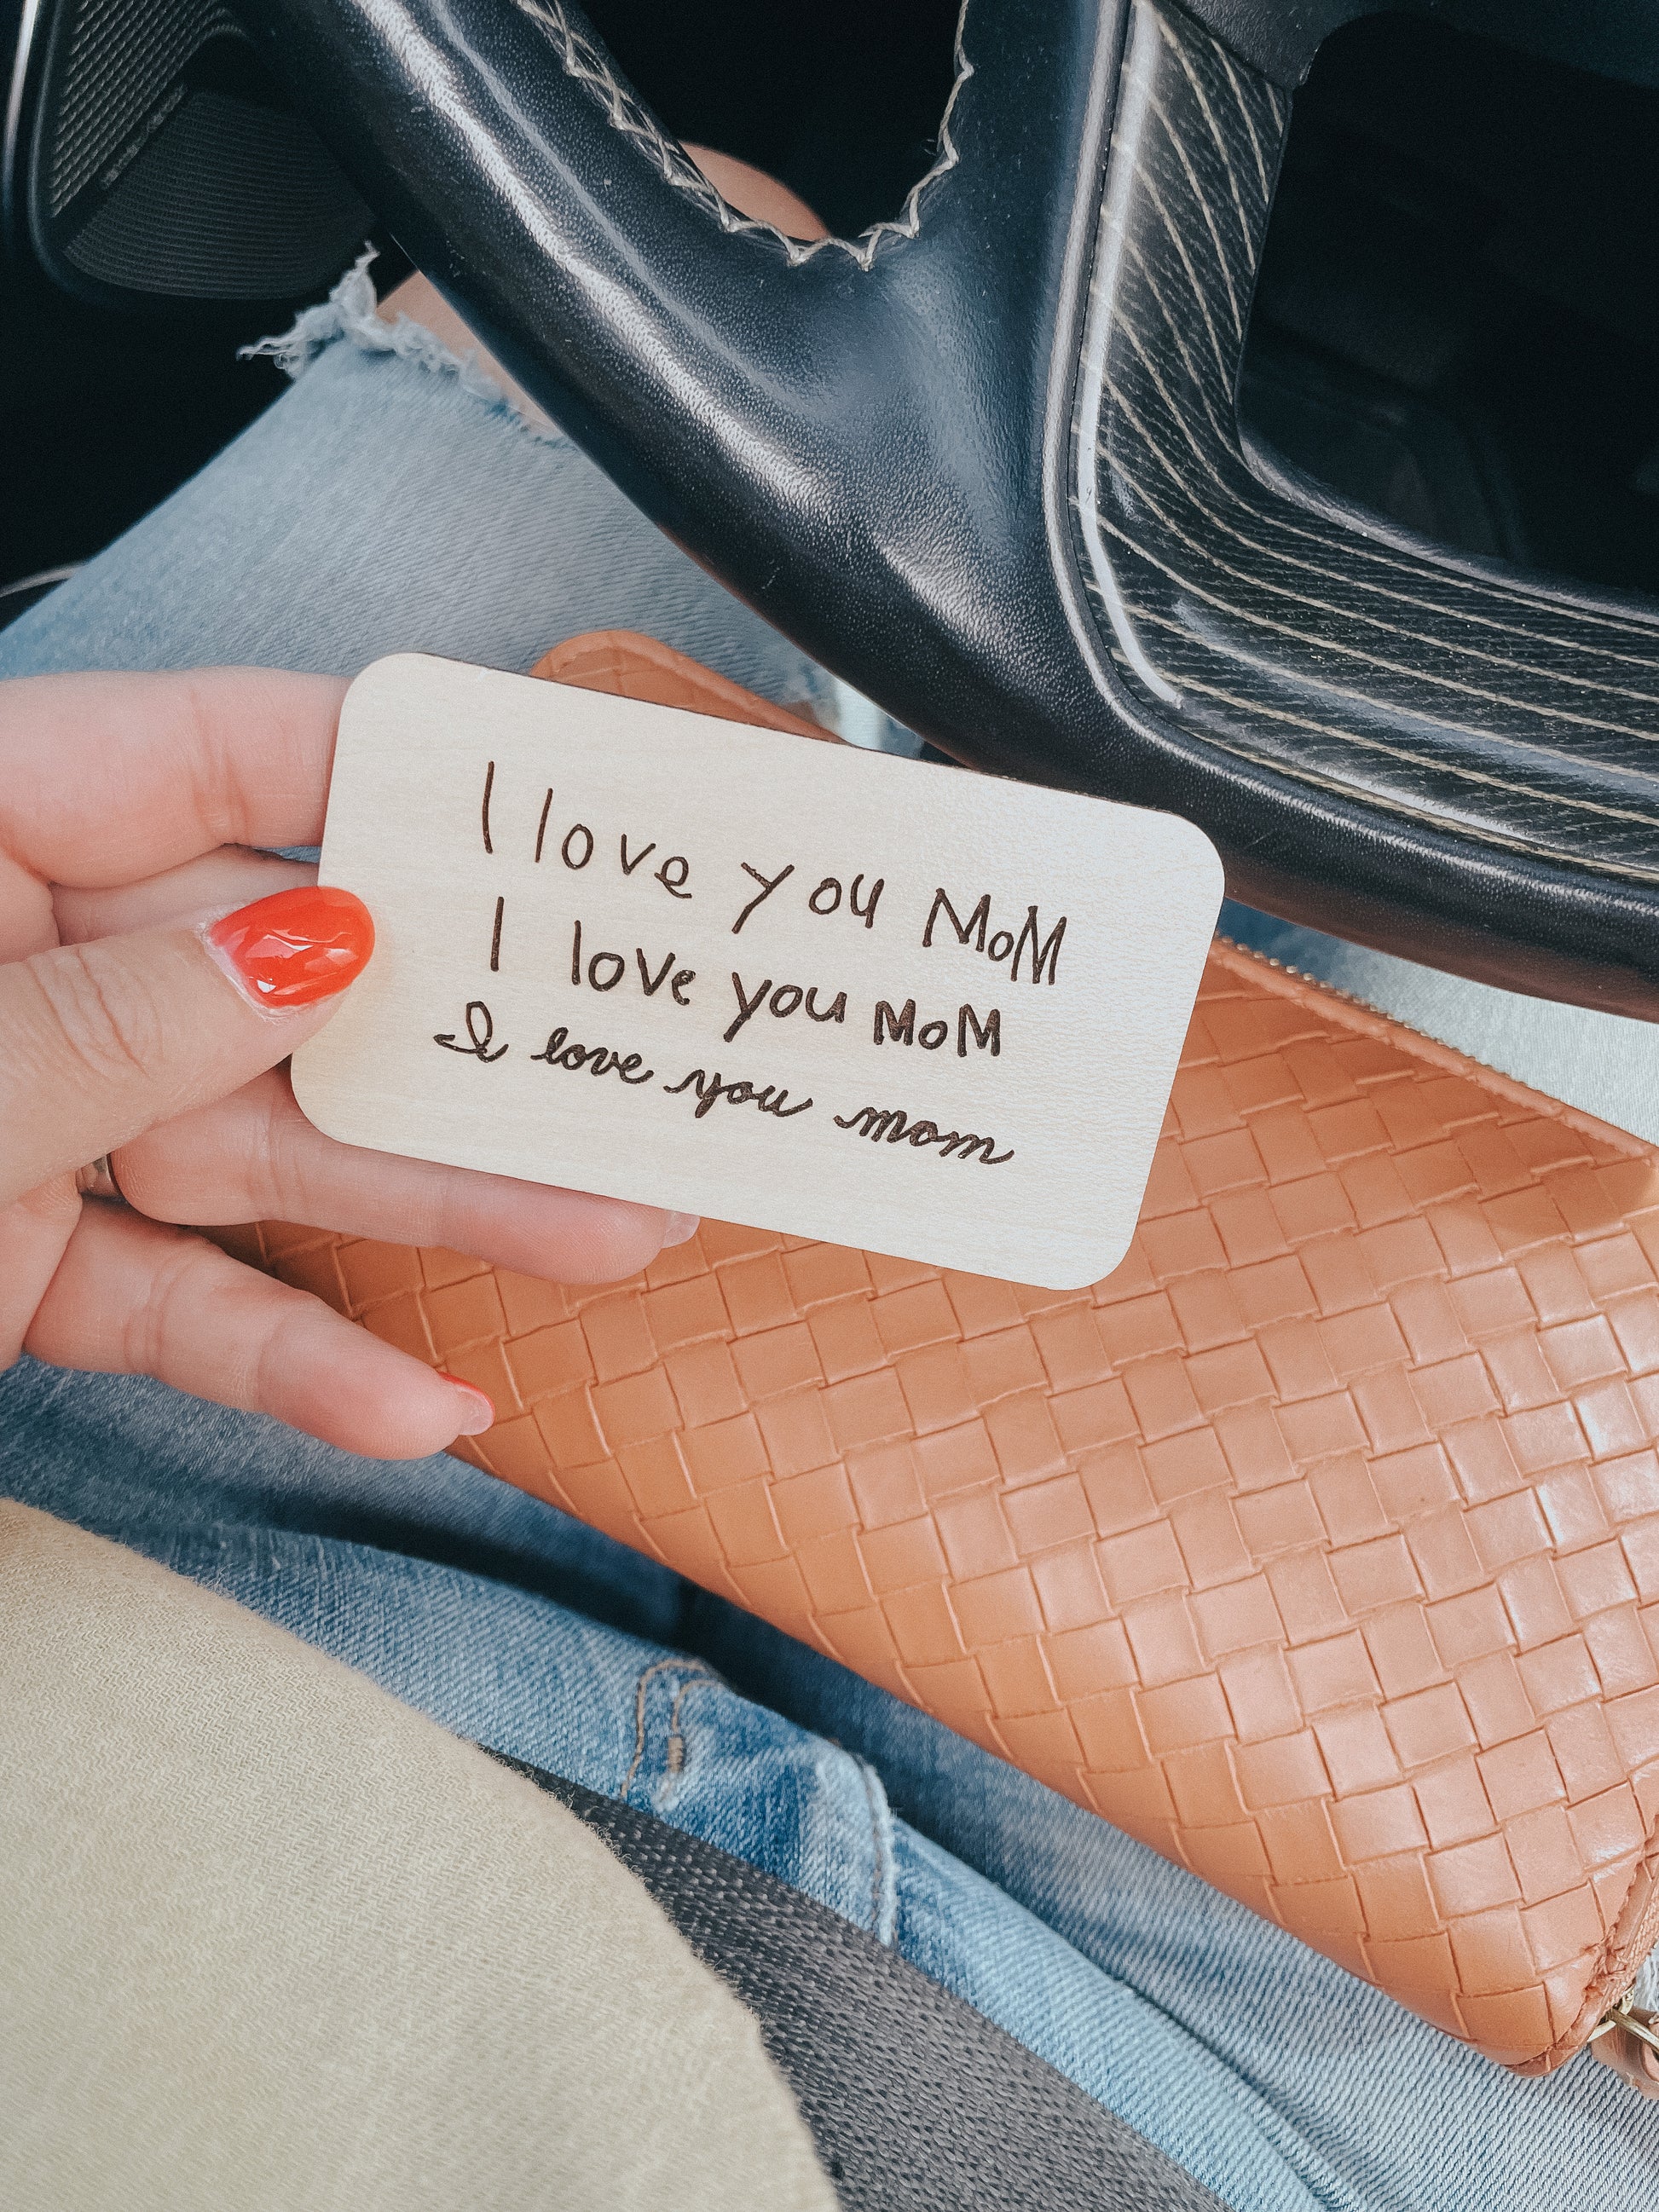 I love you MoM
I love you MoM
I love you mom